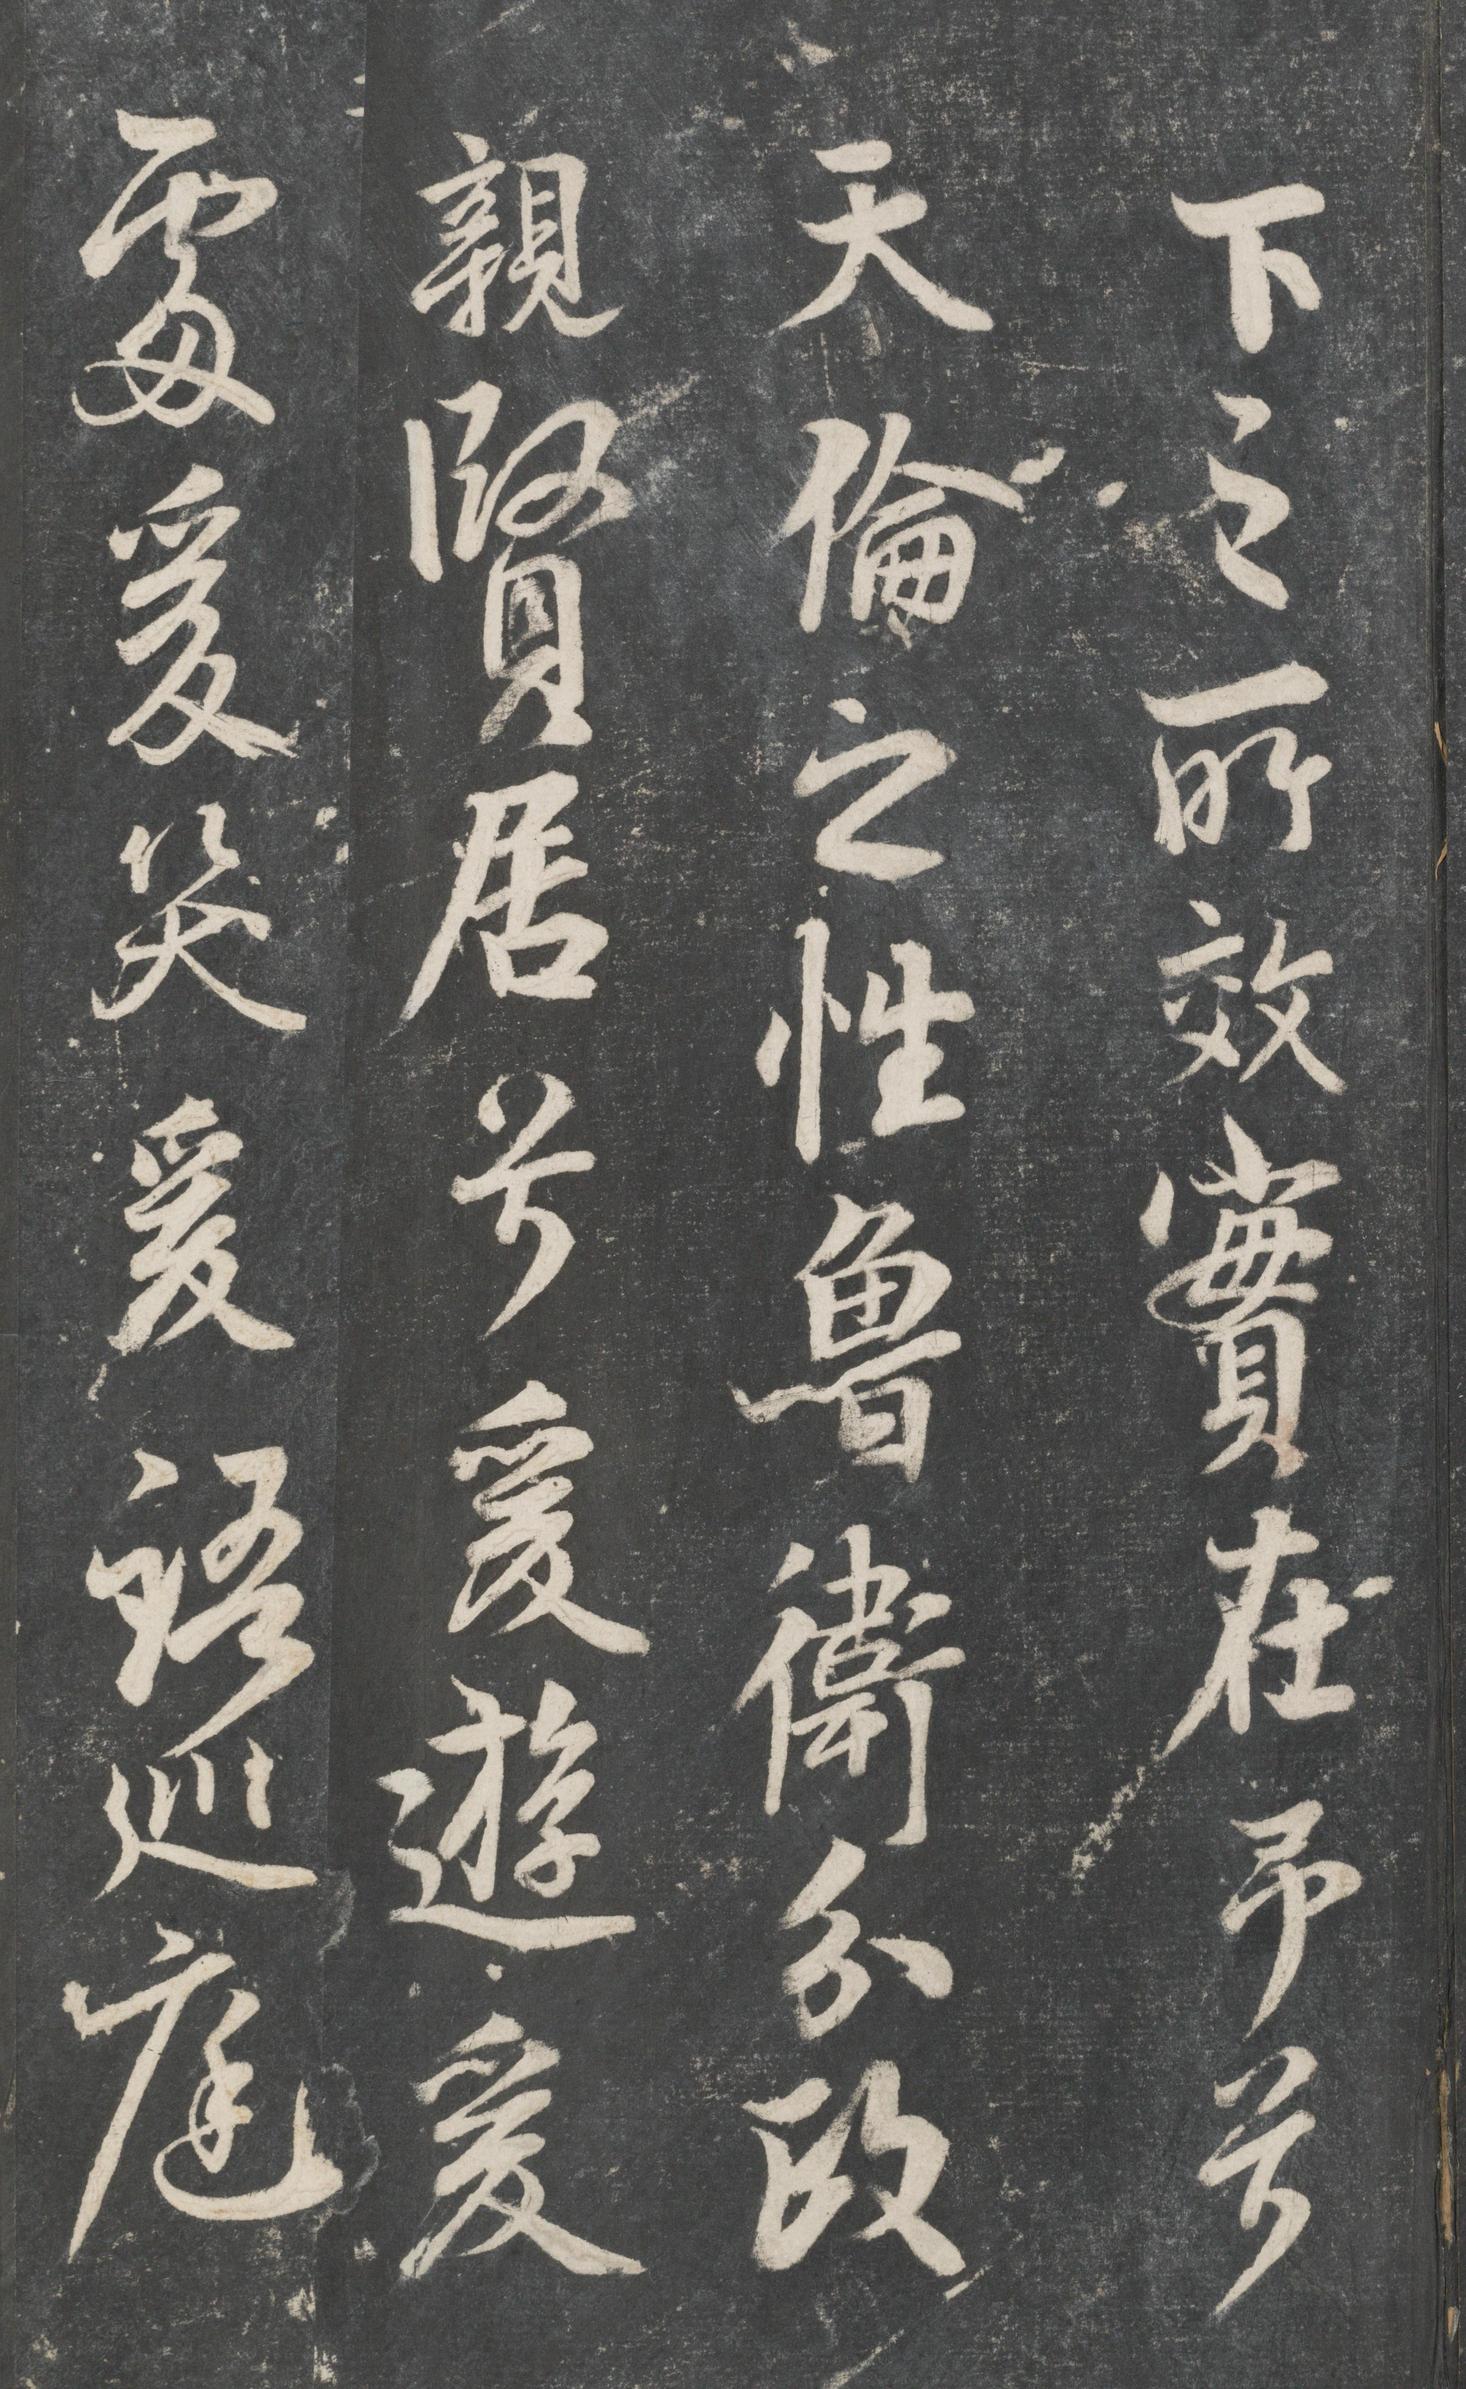 下之所效實在予兮
天倫之性魯衛分政
親賢居兮爰遊爰
處爰笑爰語巡庭